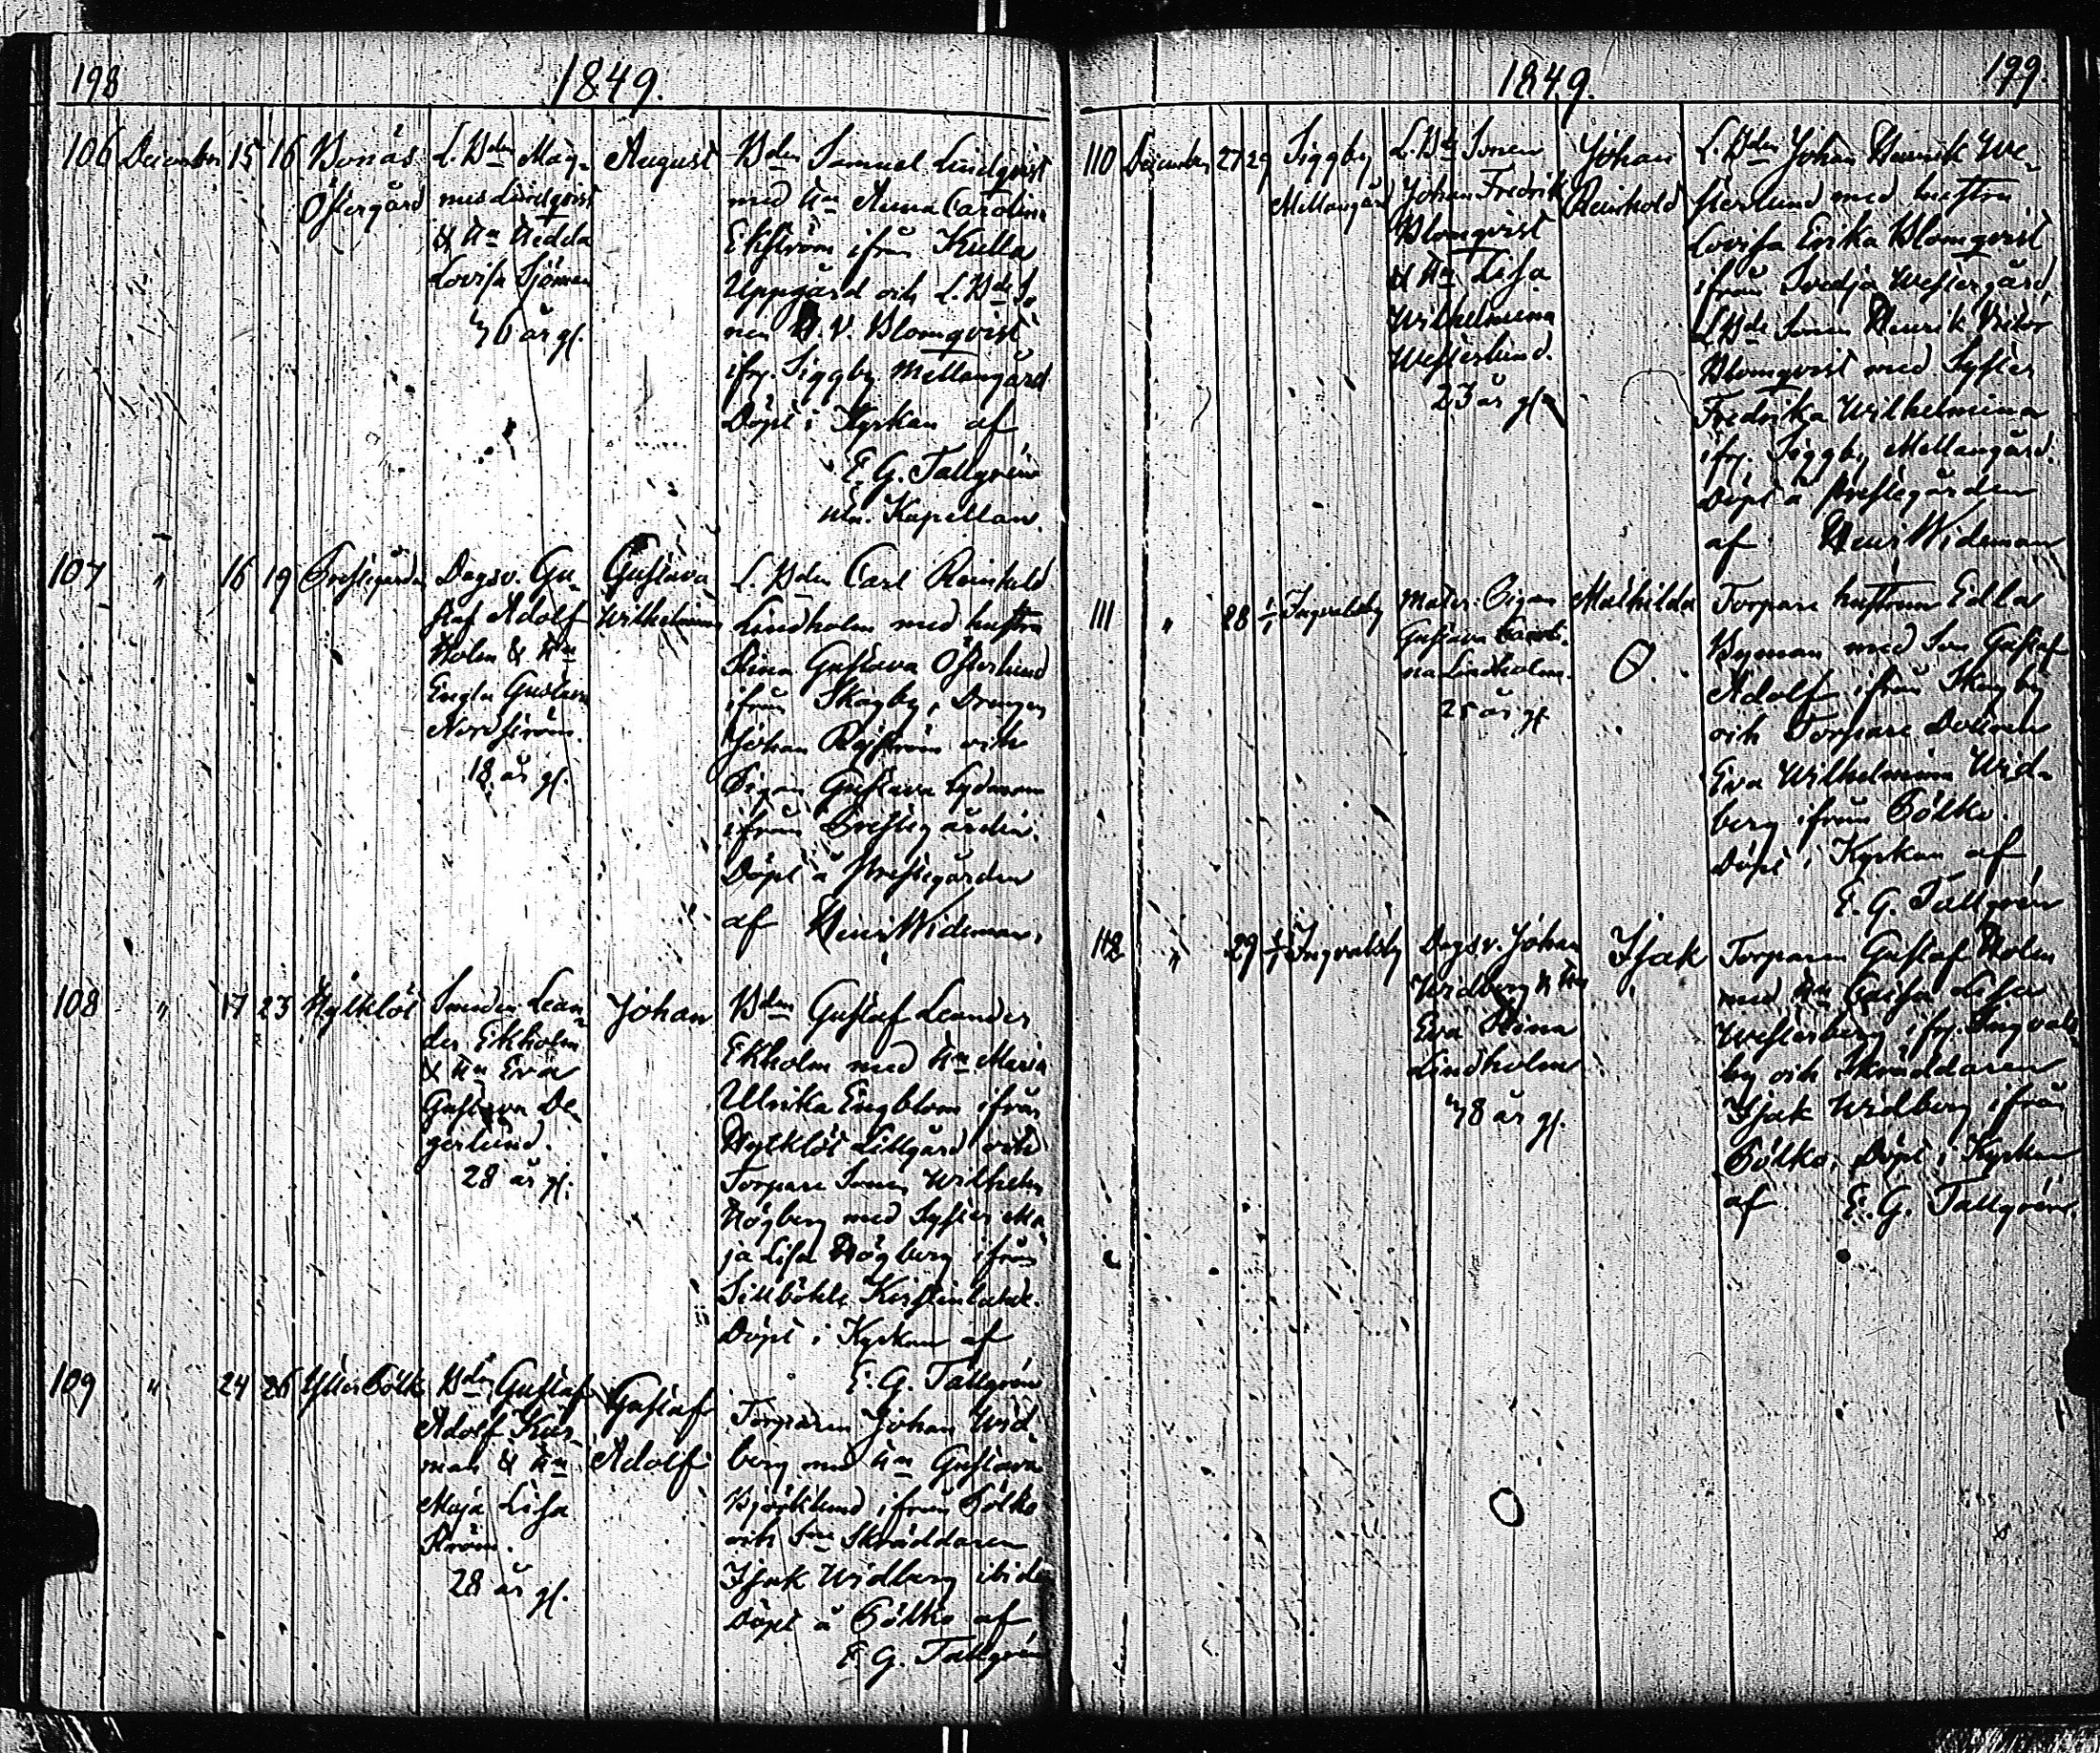 198
1849.
106 December 15 16 Bonäs Östergård
L. Bden Mag-
nus Lindqvist
& Hn Hedda
Lovisa Sjöman
46 år gl.
August
Bden Samuel Lindqvist
med Hn Anna Carolina
Ekström ifrån Kulla
Uppgård och L. Bde So
nen H. V. Blomqvist
ifr. Siggby Mellangård
Döpt i Kyrkan af
E. G. Tallgrén
Kapellan.
107 " 16 19 Prestegården
Dagsv. Gu-
staf Adolf
Holm & Hn
Engla Gustava
Nordström.
18 år gl.
Gustava
Wilhelmina
L. Bden Carl Reinhold
Lindholm med hustru
Stina Gustava Österlund
ifrån Skogby, Drengen
Johan och
Pigan Gustava
ifrån Prestegården.
Döpt å Prestegården
af Henr Wideman.
108 " 17 23
Smeden Lean-
der Ekholm
& Hn Eva
Gustava De-
gerlund.
28 år gl.
Johan
Bden Gustaf Leander
Ekholm med Hn Maria
Ulrika Engblom ifrån
Lillgård och
Torpare Sonen Wilhelm
Högberg med Syster Ma
ja Lisa Högberg ifrån
Döpt i Kyrkan af
E. G. Tallgrén
109 " 24 26 Ytter Bölk
Bden Gustaf
Adolf
man & Hn
Maja Lisa
Ström.
28 år gl.
Gustaf
Adolf
Torparen Johan Wid-
berg med Hn Gustava
Björklund ifrån Bölks
och Skräddaren
Isak Widberg ibid
Döpt å Bölks af
E. G. Tallgrén
1849.
199.
110 December 27 29 Siggby Mellangård
L. Bde Sonen
Johan Fredrik
Blomqvist
& Hn Lisa
Wilhelmina
Westerlund.
23 år gl.
Johan
Reinhold
L. Bden Johan Henrik We-
sterlund med hustru
Lovisa Erika Blomqvist
ifrån Svedja Westergård,
L. Bde Sonen Henrik Victor
Blomqvist med Syster
Fredrika Wilhelmina
ifr. Siggby Mellangård.
Döpt å Prestegården
af Henr Wideman
111 " 28 1/1 Ingvalsby
Mater: Pigan
Gustava Caroli-
na Lindholm.
25 år gl.
Mathilda
O.
Torpare hustrun Edla
Byman med Son Gustaf
Adolf ifrån Skogby
och Torpare Dottren
Eva Wilhelmina Wid-
berg ifrån Bölks.
Döpt i Kyrkan af
E. G. Tallgrén
112 " 29 1/1 Ingvalsby
Dagsv. Johan
Widberg & Hn
Eva Stina
Lindholm
48 år gl.
Isak
Torparen Gustaf Holm
med Hn Caisa Lisa
Westerberg ifr. Ingvals-
by och Skräddaren
Isak Widberg ifrån
Bölks. Döpt i Kyrkan
af E. G. Tallgrén.